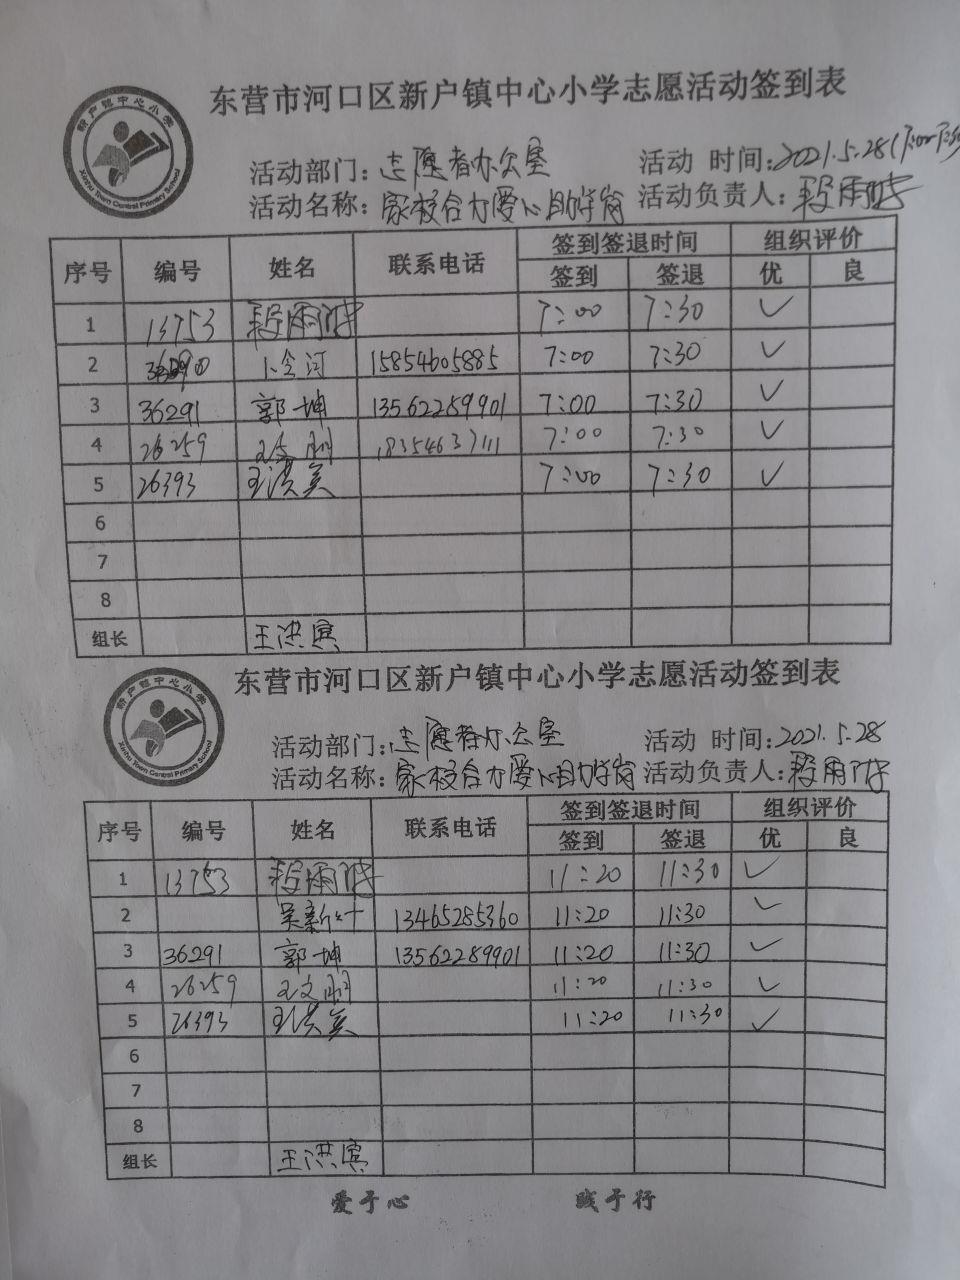 东营市河口区新户镇中心小学志愿活动签到表
新户镇中心小学
Xinhu Town Central Primary School
活动部门：志愿者办公室 活动 时间：2021.5.28(7:00-7:30
活动名称：家校合力爱心助学岗 活动负责人：段雨晴
序号 编号 姓名 联系电话 签到签退时间 组织评价
签到 签退 优 良
1 13753 段雨晴 7:00 7:30 ✓
2 15854605885 7:00 7:30 ✓
3 36291 郭坤 13562289901 7:00 7:30 ✓
4 26259 18354637111 7:00 7:30 ✓
5 26393 7:00 7:30 ✓
6
7
8
组长 王洪宾
东营市河口区新户镇中心小学志愿活动签到表
新户镇中心小学
Xinhu Town Central Primary School
活动部门：志愿者办公室 活动 时间：2021.5.28
活动名称：家校合力爱心助学岗 活动负责人：段雨晴
序号 编号 姓名 联系电话 签到签退时间 组织评价
签到 签退 优 良
1 13753 段雨晴 11:20 11:30 ✓
2 吴新叶 13465285360 11:20 11:30 ✓
3 36291 郭坤 13562289901 11:20 11:30 ✓
4 26259 11:20 11:30 ✓
5 26393 11:20 11:30 ✓
6
7
8
组长 王洪宾
爱于心 践于行